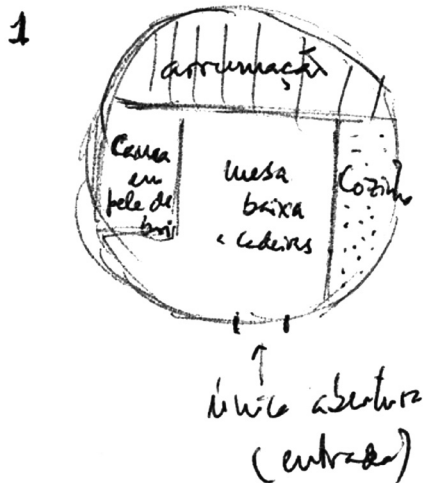 1
arrumação
Cama
em
pele de
boi
mesa
baixa
e cadeiras
Cozinha
única abertura
(entrada)